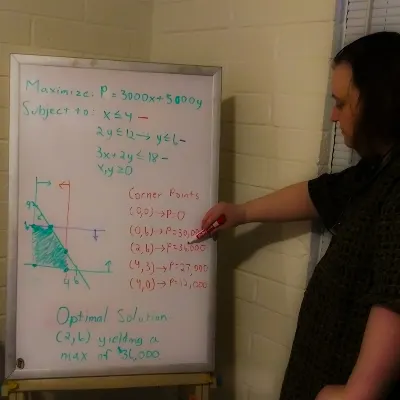 Maximize: P = 3000x + 5000y
Subject to: x ≤ 4
2y ≤ 12 → y ≤ 6
3x + 2y ≤ 18
x, y ≥ 0
Corner Points
(0,0) → P = 0
(0,6) → P = 30,000
(2,6) → P = 36,000
(4,3) → P = 27,000
(4,0) → P = 12,000
9
6
4
6
Optimal Solution
(2,6) yielding a
max of 36,000